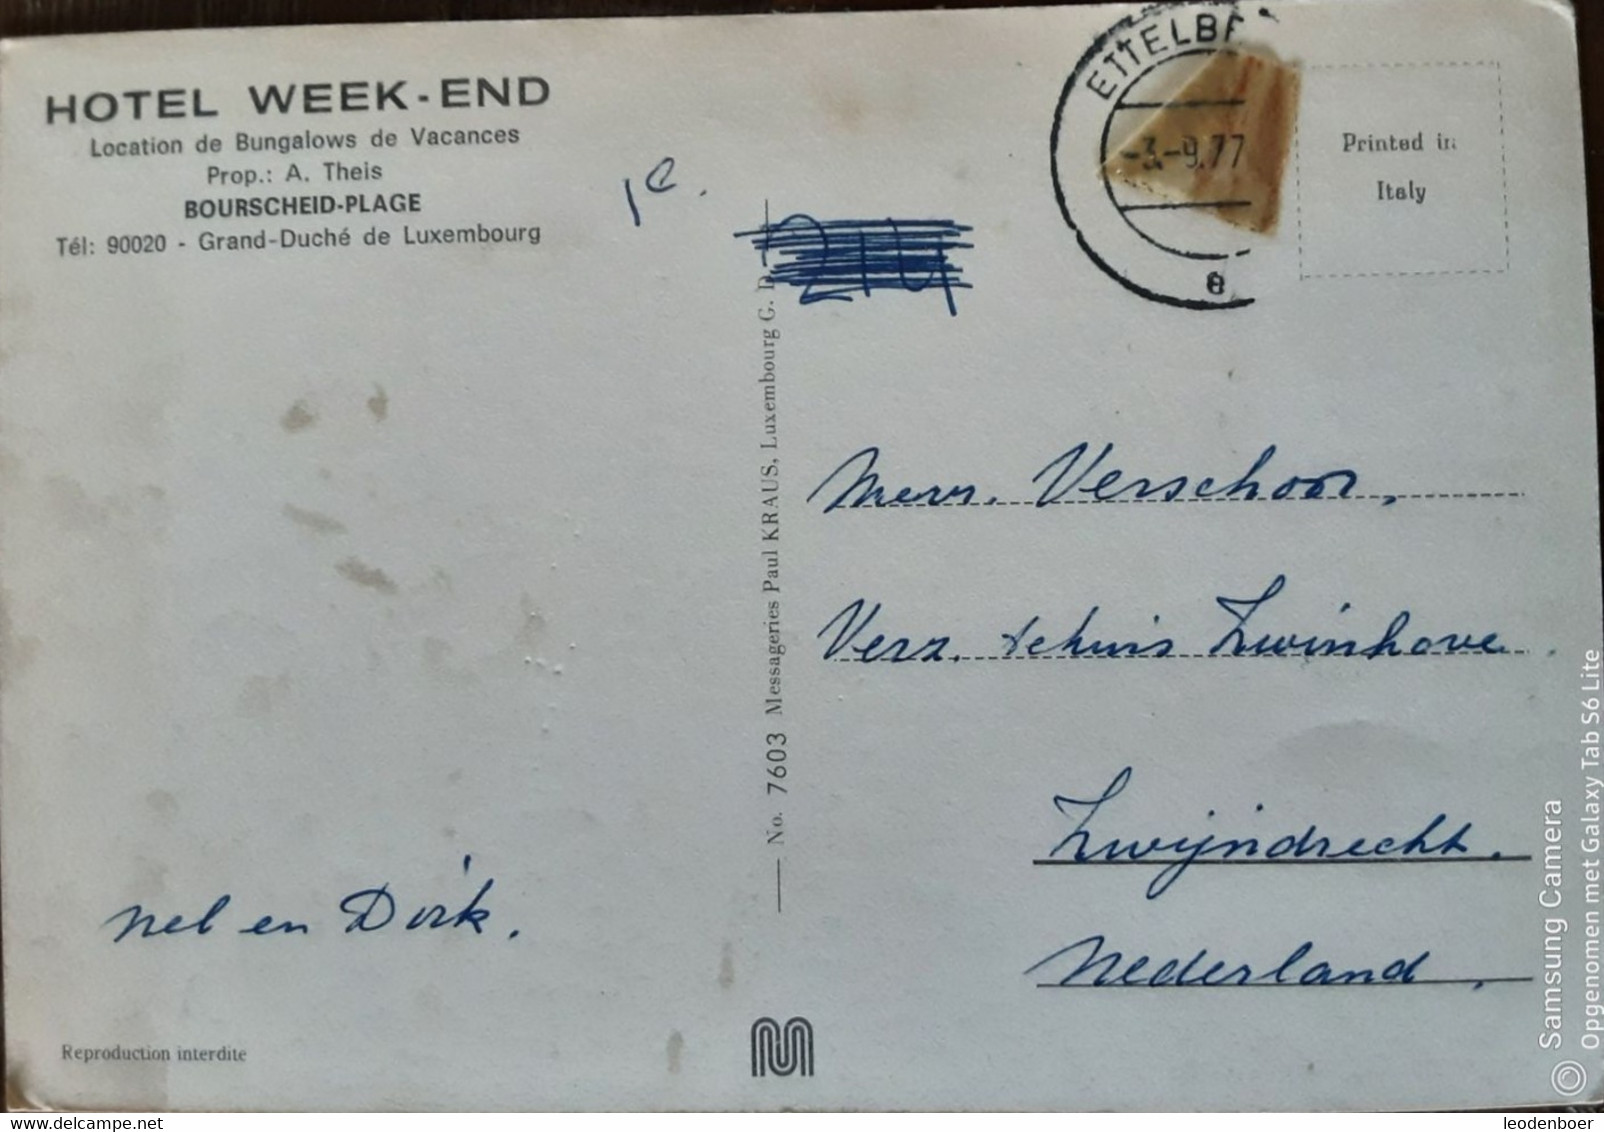 HOTEL WEEK-END
Location de Bungalows de Vacances
Prop.: A. Theis
BOURSCHEID-PLAGE
Tél: 90020 - Grand-Duché de Luxembourg
1e.
ETTELBR
-3.-9.77
e
Printed in
Italy
No. 7603 Messageries Paul KRAUS, Luxembourg G. D.
Mevr. Verschoor,
Verz. tehuis Zwinhove.
Zwijndrecht.
Nederland,
Nel en Dirk.
Reproduction interdite
Samsung Camera
Opgenomen met Galaxy Tab S6 Lite
https://www.delcampe.net
leodenboer